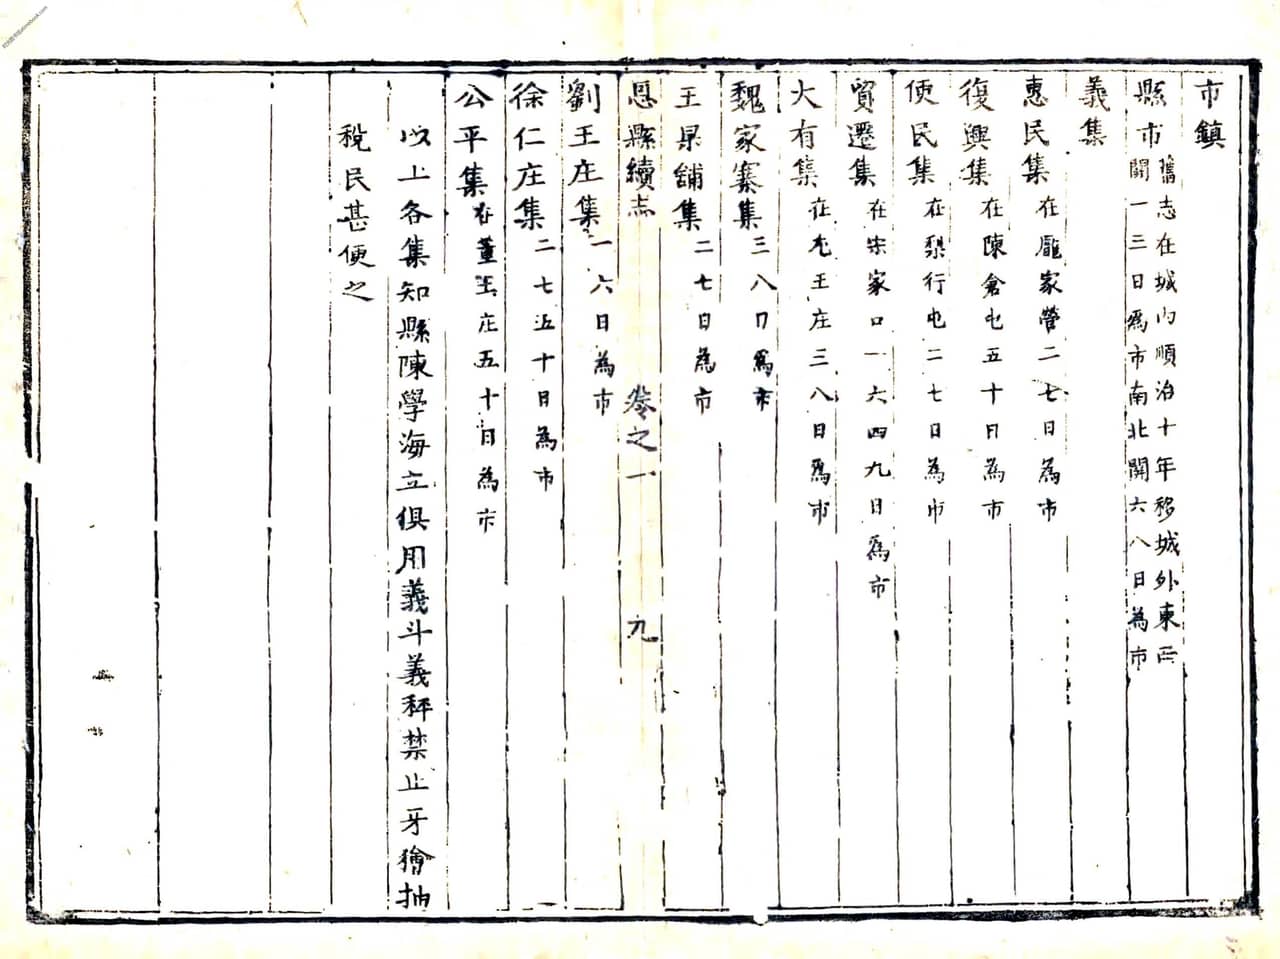 市鎮
縣市
舊志在城內順治十年移城外東西
關一三日爲市南北關六八日為市
義集
惠民集 在龐家營二七日為市
復興集 在陳倉屯五十日為市
便民集 在梨行屯二七日為市
貿遷集 在宋家口一六四九日爲市
大有集 在尢王庄三八日爲市
魏家寨集 三八日爲市
王杲舖集 二七日為市
恩縣續志 卷之一 九
劉王庄集 一六日為市
徐仁庄集 二七五十日為市
公平集 在董王庄五十日為市
以上各集知縣陳學海立俱用義斗義秤禁止牙獪抽
稅民甚便之